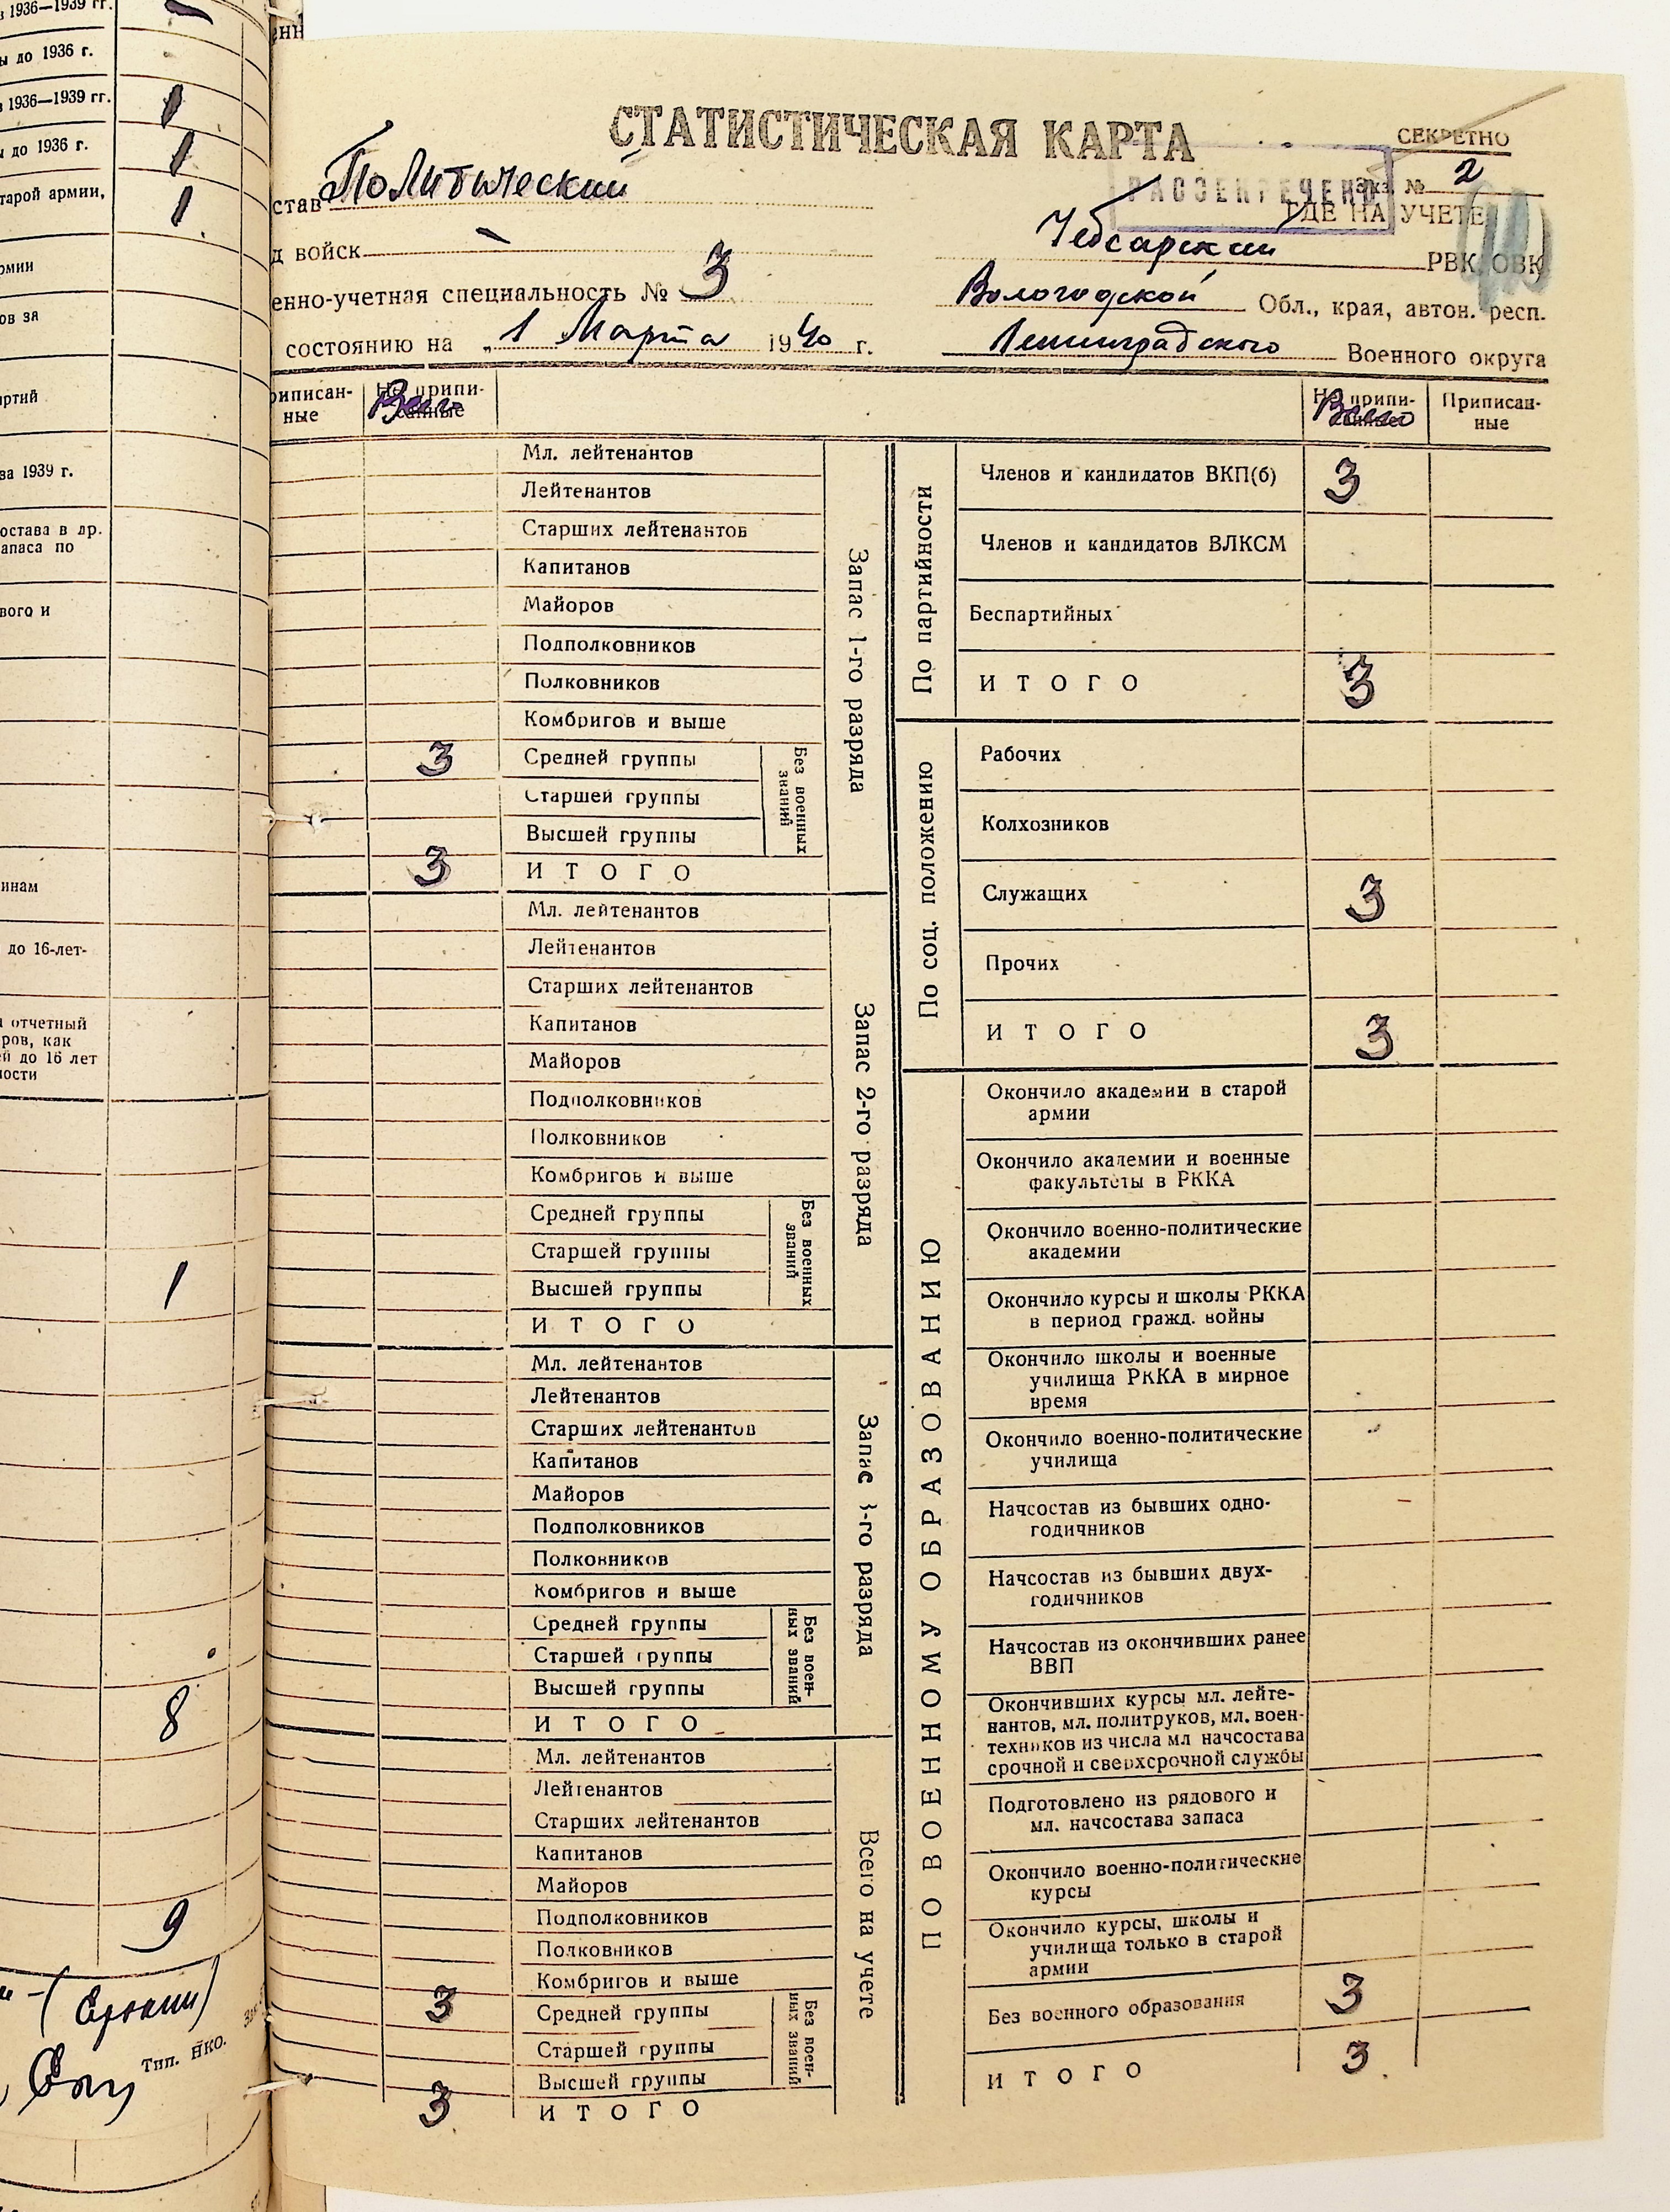 в 1936—1939 гг.
ы до 1936 г.
в 1936—1939 гг. 1
ы до 1936 г. 1
тарой армии, 1
рмии
ов за
артий
ва 1939 г.
остава в др.
апаса по
вого и
инам
до 16-лет-
отчетный
ров, как
ей до 16 лет
ости
1
8
9
Тип. НКО.
СТАТИСТИЧЕСКАЯ КАРТА
СЕКРЕТНО
Экз. № 2
РАССЕКРЕЧЕНО
став Политический
ГДЕ НА УЧЕТЕ
д войск —
Чебсарский РВК, ОВК
енно-учетная специальность № 3
Вологодской Обл., края, автон. респ.
состоянию на „1 Марта 1940 г.
Ленинградского Военного округа
риписан-
ные
Не припи-
санные
Всего
Мл. лейтенантов
Лейтенантов
Старших лейтенантов
Капитанов
Майоров
Подполковников
Полковников
Комбригов и выше
3 Средней группы
Старшей группы
Высшей группы
Без военных
званий
3 ИТОГО
Запас 1-го разряда
Мл. лейтенантов
Лейтенантов
Старших лейтенантов
Капитанов
Майоров
Подполковников
Полковников
Комбригов и выше
Средней группы
Старшей группы
Высшей группы
Без военных
званий
ИТОГО
Запас 2-го разряда
Мл. лейтенантов
Лейтенантов
Старших лейтенантов
Капитанов
Майоров
Подполковников
Полковников
Комбригов и выше
Средней группы
Старшей группы
Высшей группы
Без воен-
ных званий
ИТОГО
Запас 3-го разряда
Мл. лейтенантов
Лейтенантов
Старших лейтенантов
Капитанов
Майоров
Подполковников
Полковников
Комбригов и выше
3 Средней группы
Старшей группы
Высшей группы
Без воен-
ных званий
3 ИТОГО
Всего на учете
Не припи-
санные
Всего
Приписан-
ные
По партийности
Членов и кандидатов ВКП(б) 3
Членов и кандидатов ВЛКСМ
Беспартийных
ИТОГО 3
По соц. положению
Рабочих
Колхозников
Служащих 3
Прочих
ИТОГО 3
ПО ВОЕННОМУ ОБРАЗОВАНИЮ
Окончило академии в старой
армии
Окончило академии и военные
факультеты в РККА
Окончило военно-политические
академии
Окончило курсы и школы РККА
в период гражд. войны
Окончило школы и военные
училища РККА в мирное
время
Окончило военно-политические
училища
Начсостав из бывших одно-
годичников
Начсостав из бывших двух-
годичников
Начсостав из окончивших ранее
ВВП
Окончивших курсы мл. лейте-
нантов, мл. политруков, мл. воен-
техников из числа мл начсостава
срочной и сверхсрочной службы
Подготовлено из рядового и
мл. начсостава запаса
Окончило военно-политические
курсы
Окончило курсы, школы и
училища только в старой
армии
Без военного образования 3
ИТОГО 3